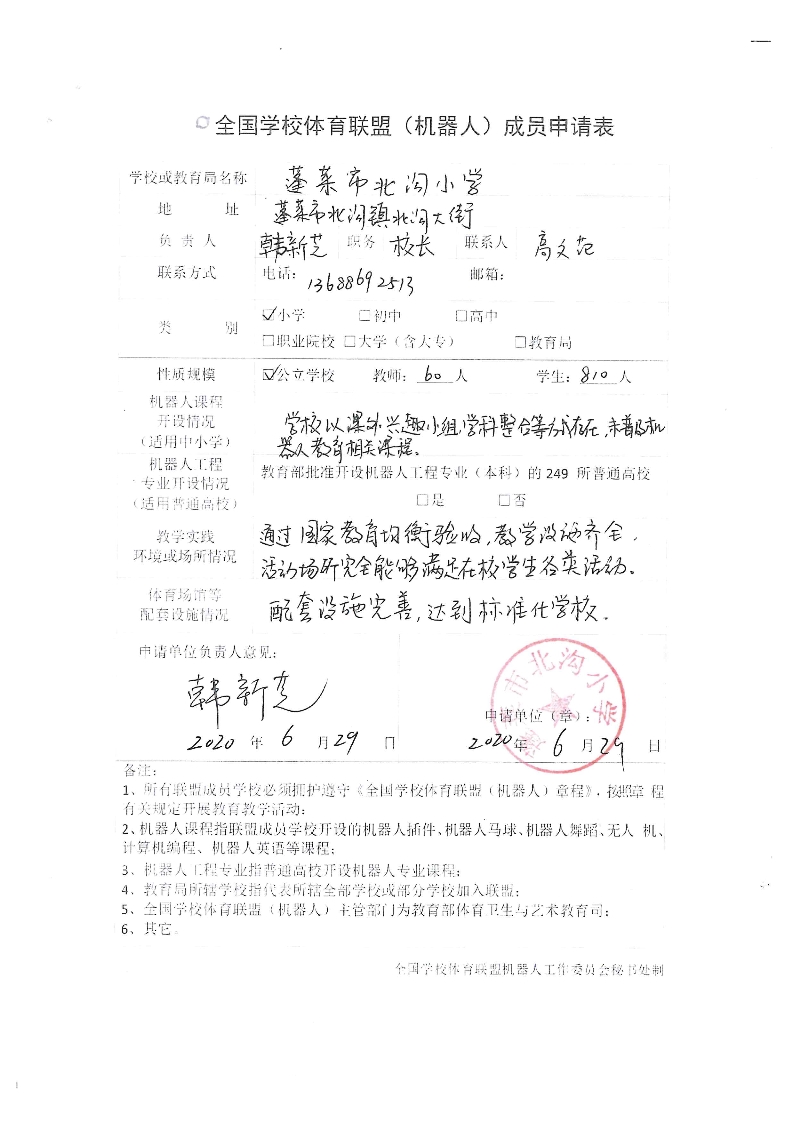 全国学校体育联盟（机器人）成员申请表
学校或教育局名称 蓬莱市北沟小学
地 址 蓬莱市北沟镇北沟大街
负 责 人 韩新芝 职务 校长 联系人 高文范
联系方式 电话：13688692513 邮箱：
类 别 ☑小学 □初中 □高中
□职业院校 □大学（含大专） □教育局
性质规模 ☑公立学校 教师：60人 学生：810人
机器人课程
开设情况
（适用中小学）
学校以课外兴趣小组,学科整合等方式存在,未普及机
器人教育相关课程。
机器人工程
专业开设情况
（适用普通高校）
教育部批准开设机器人工程专业（本科）的 249 所普通高校
□是 □否
教学实践
环境或场所情况
通过国家教育均衡验收,教学设施齐全,
活动场所完全能够满足在校学生各类活动。
体育场馆等
配套设施情况
配套设施完善,达到标准化学校。
申请单位负责人意见：
韩新芝
2020 年 6 月 29 日
北沟小学
申请单位（章）：
2020 年 6 月 29 日
备注：
1、所有联盟成员学校必须拥护遵守《全国学校体育联盟（机器人）章程》，按照章 程
有关规定开展教育教学活动；
2、机器人课程指联盟成员学校开设的机器人插件、机器人马球、机器人舞蹈、无人 机、
计算机编程、机器人英语等课程；
3、机器人工程专业指普通高校开设机器人专业课程；
4、教育局所辖学校指代表所辖全部学校或部分学校加入联盟；
5、全国学校体育联盟（机器人）主管部门为教育部体育卫生与艺术教育司；
6、其它。
全国学校体育联盟机器人工作委员会秘书处制